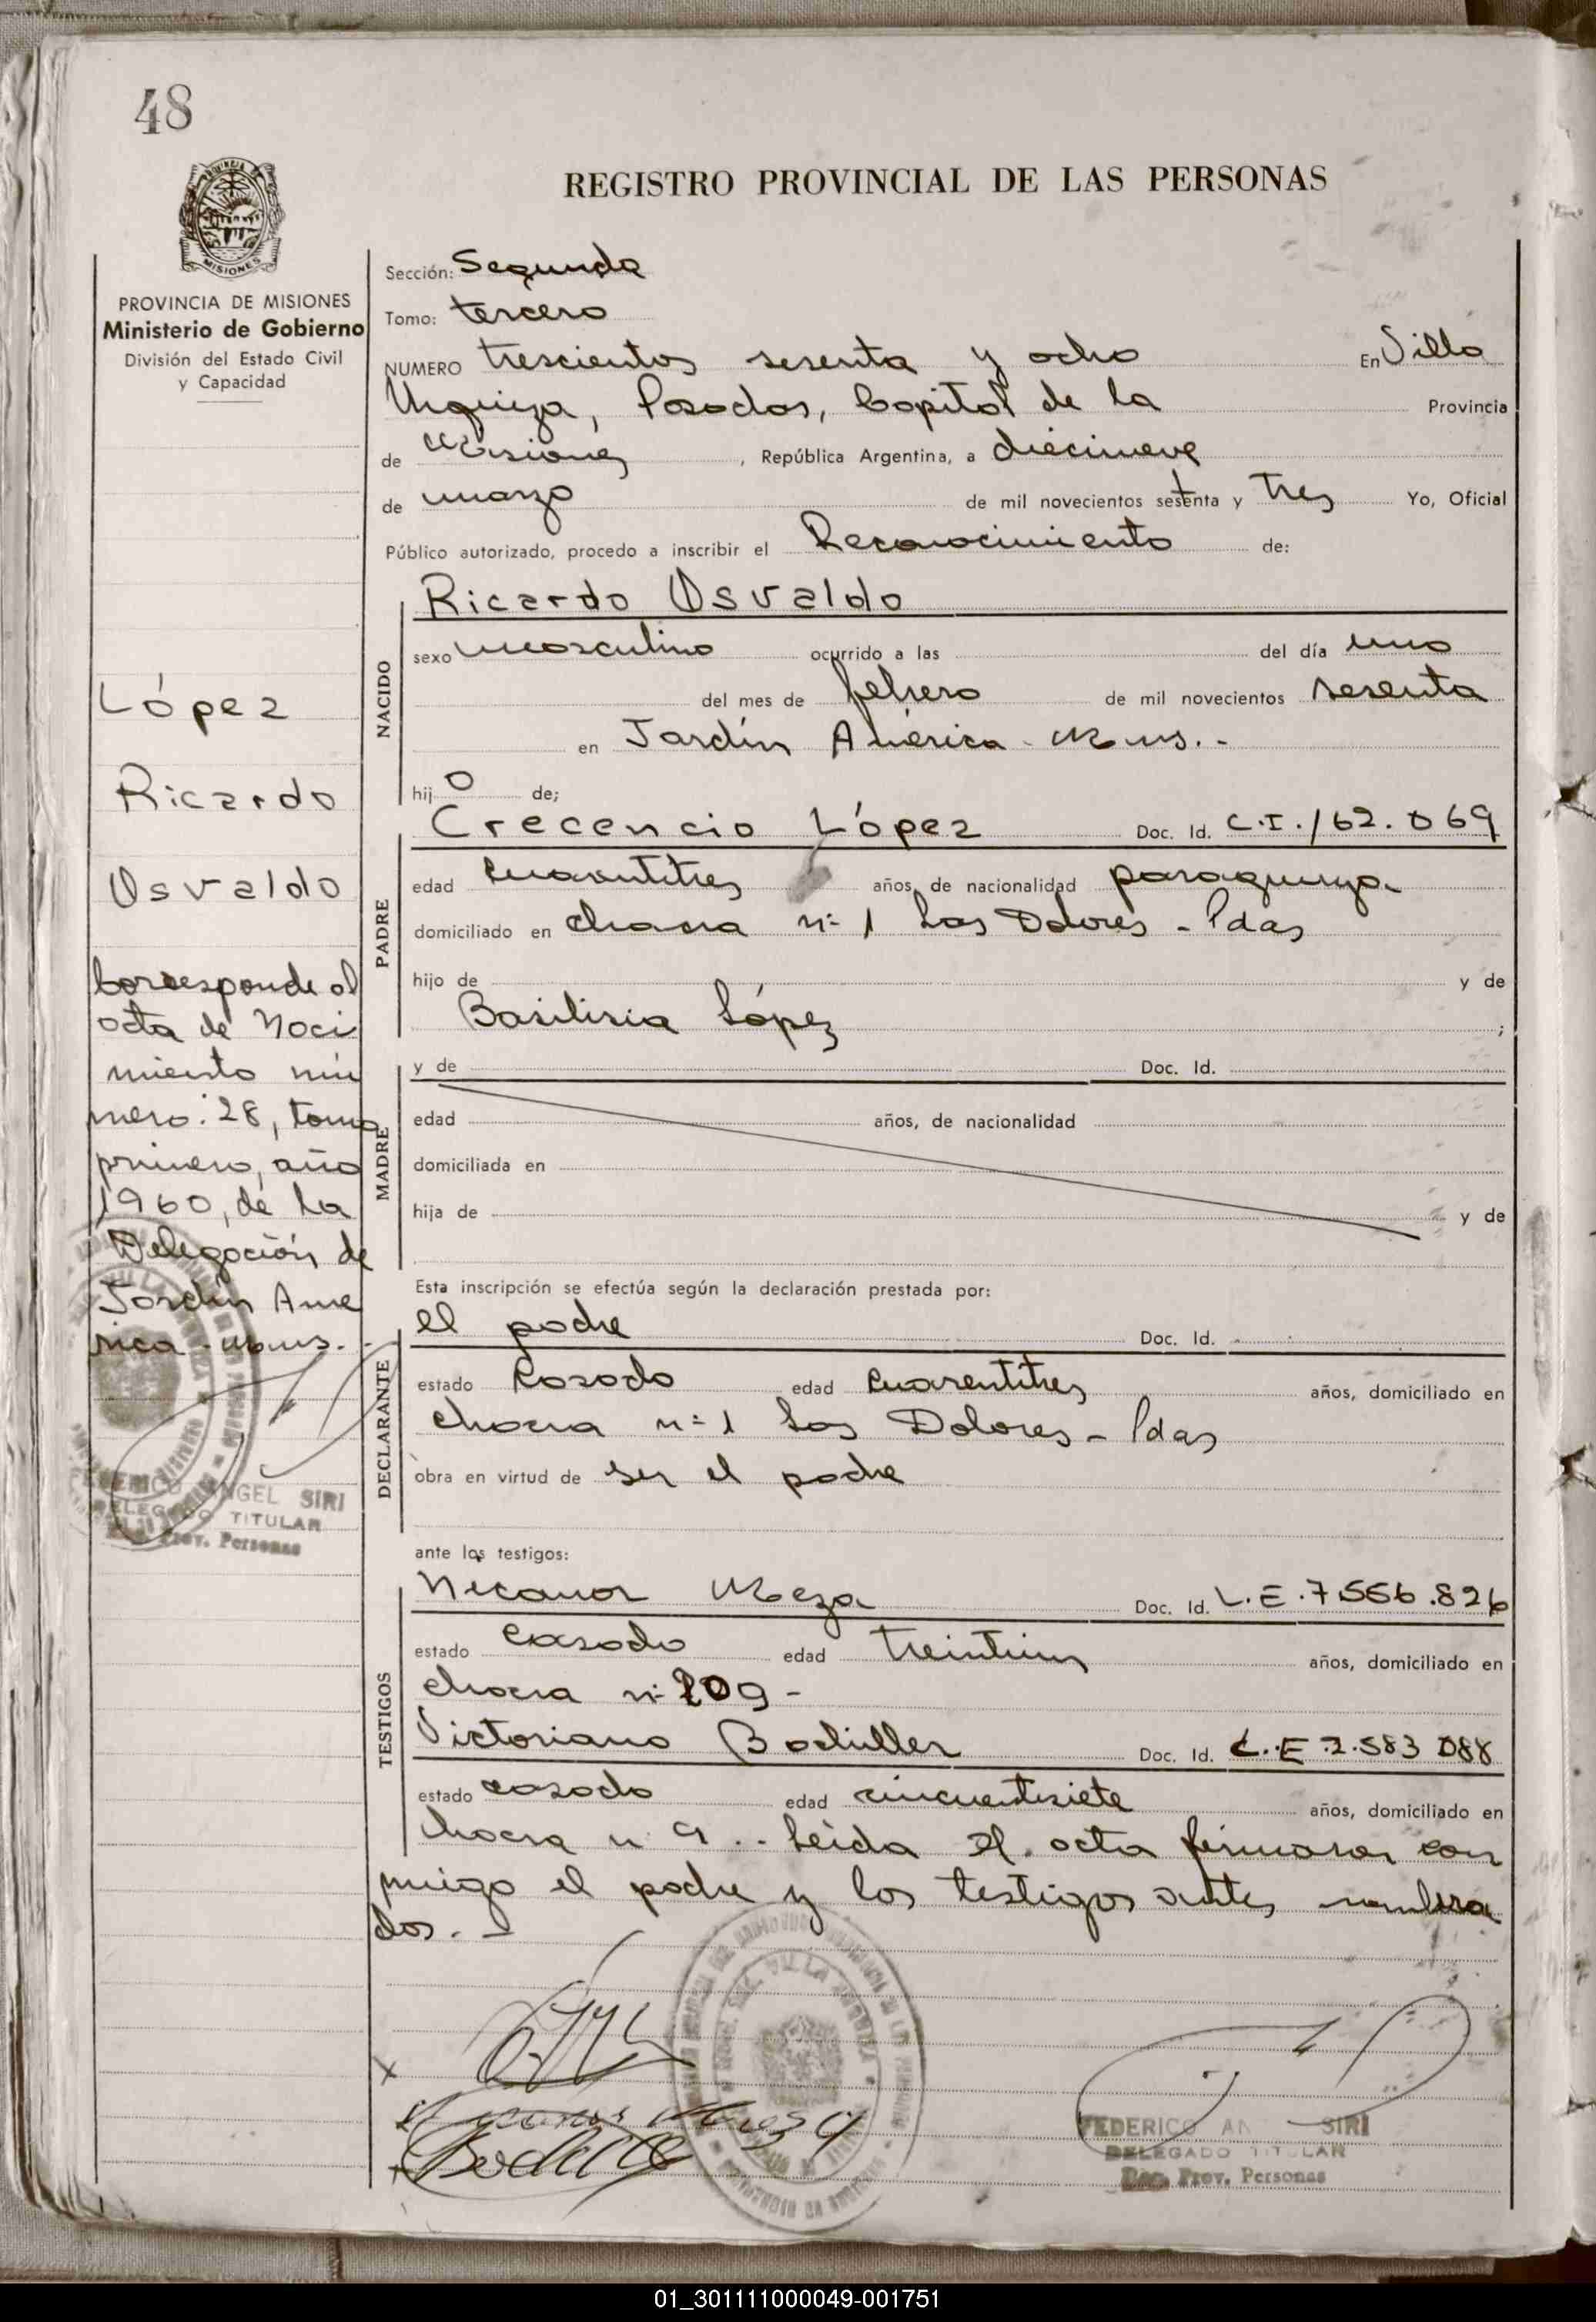 48
REGISTRO PROVINCIAL DE LAS PERSONAS
MISIONES
PROVINCIA DE MISIONES
Ministerio de Gobierno
División del Estado Civil
y Capacidad
López
Ricardo
Osvaldo
Corresponde al
acta de Naci
miento nú
mero: 28, tomo
primero, año
1960, de la
Delegación de
Jardín Ame
rica - Mnes.
ANGEL SIRI
DELEGADO TITULAR
Prov. Personas
Sección: Segunda
Tomo: tercero
NUMERO trescientos sesenta y ocho En Villa
Urquiza, Posadas, Capital de la Provincia
de Misiones, República Argentina, a diecinueve
de marzo de mil novecientos setenta y tres Yo, Oficial
Público autorizado, procedo a inscribir el Reconocimiento de:
NACIDO
Ricardo Osvaldo
sexo masculino ocurrido a las del día uno
del mes de febrero de mil novecientos sesenta
en Jardín América - Mnes.-
hijo de;
PADRE
Crecencio López Doc. Id. C.I./62.069
edad cuarentitres años, de nacionalidad paraguaya
domiciliado en chacra n: 1 Las Dolores - Pdas
hijo de y de
Basilisia López ;
MADRE
y de Doc. Id.
edad años, de nacionalidad
domiciliada en
hija de y de
Esta inscripción se efectúa según la declaración prestada por:
DECLARANTE
el padre Doc. Id.
estado casado edad cuarentitres años, domiciliado en
chacra n: 1 Las Dolores - Pdas
obra en virtud de ser el padre
ante los testigos:
TESTIGOS
Nicanor Meza Doc. Id. L.E. 7.556.826
estado casado edad treintiun años, domiciliado en
chacra n: 209 -
Victoriano Bachiller Doc. Id. L.E 2.583 088
estado casado edad cincuentisiete años, domiciliado en
chacra n: 9 .. Leida el acta firmaron con
migo el padre y los testigos antes nombra
dos. -
VILLA URQUIZA
FEDERICO AN SIRI
DELEGADO TITULAR
Prov. Personas
01_301111000049-001751